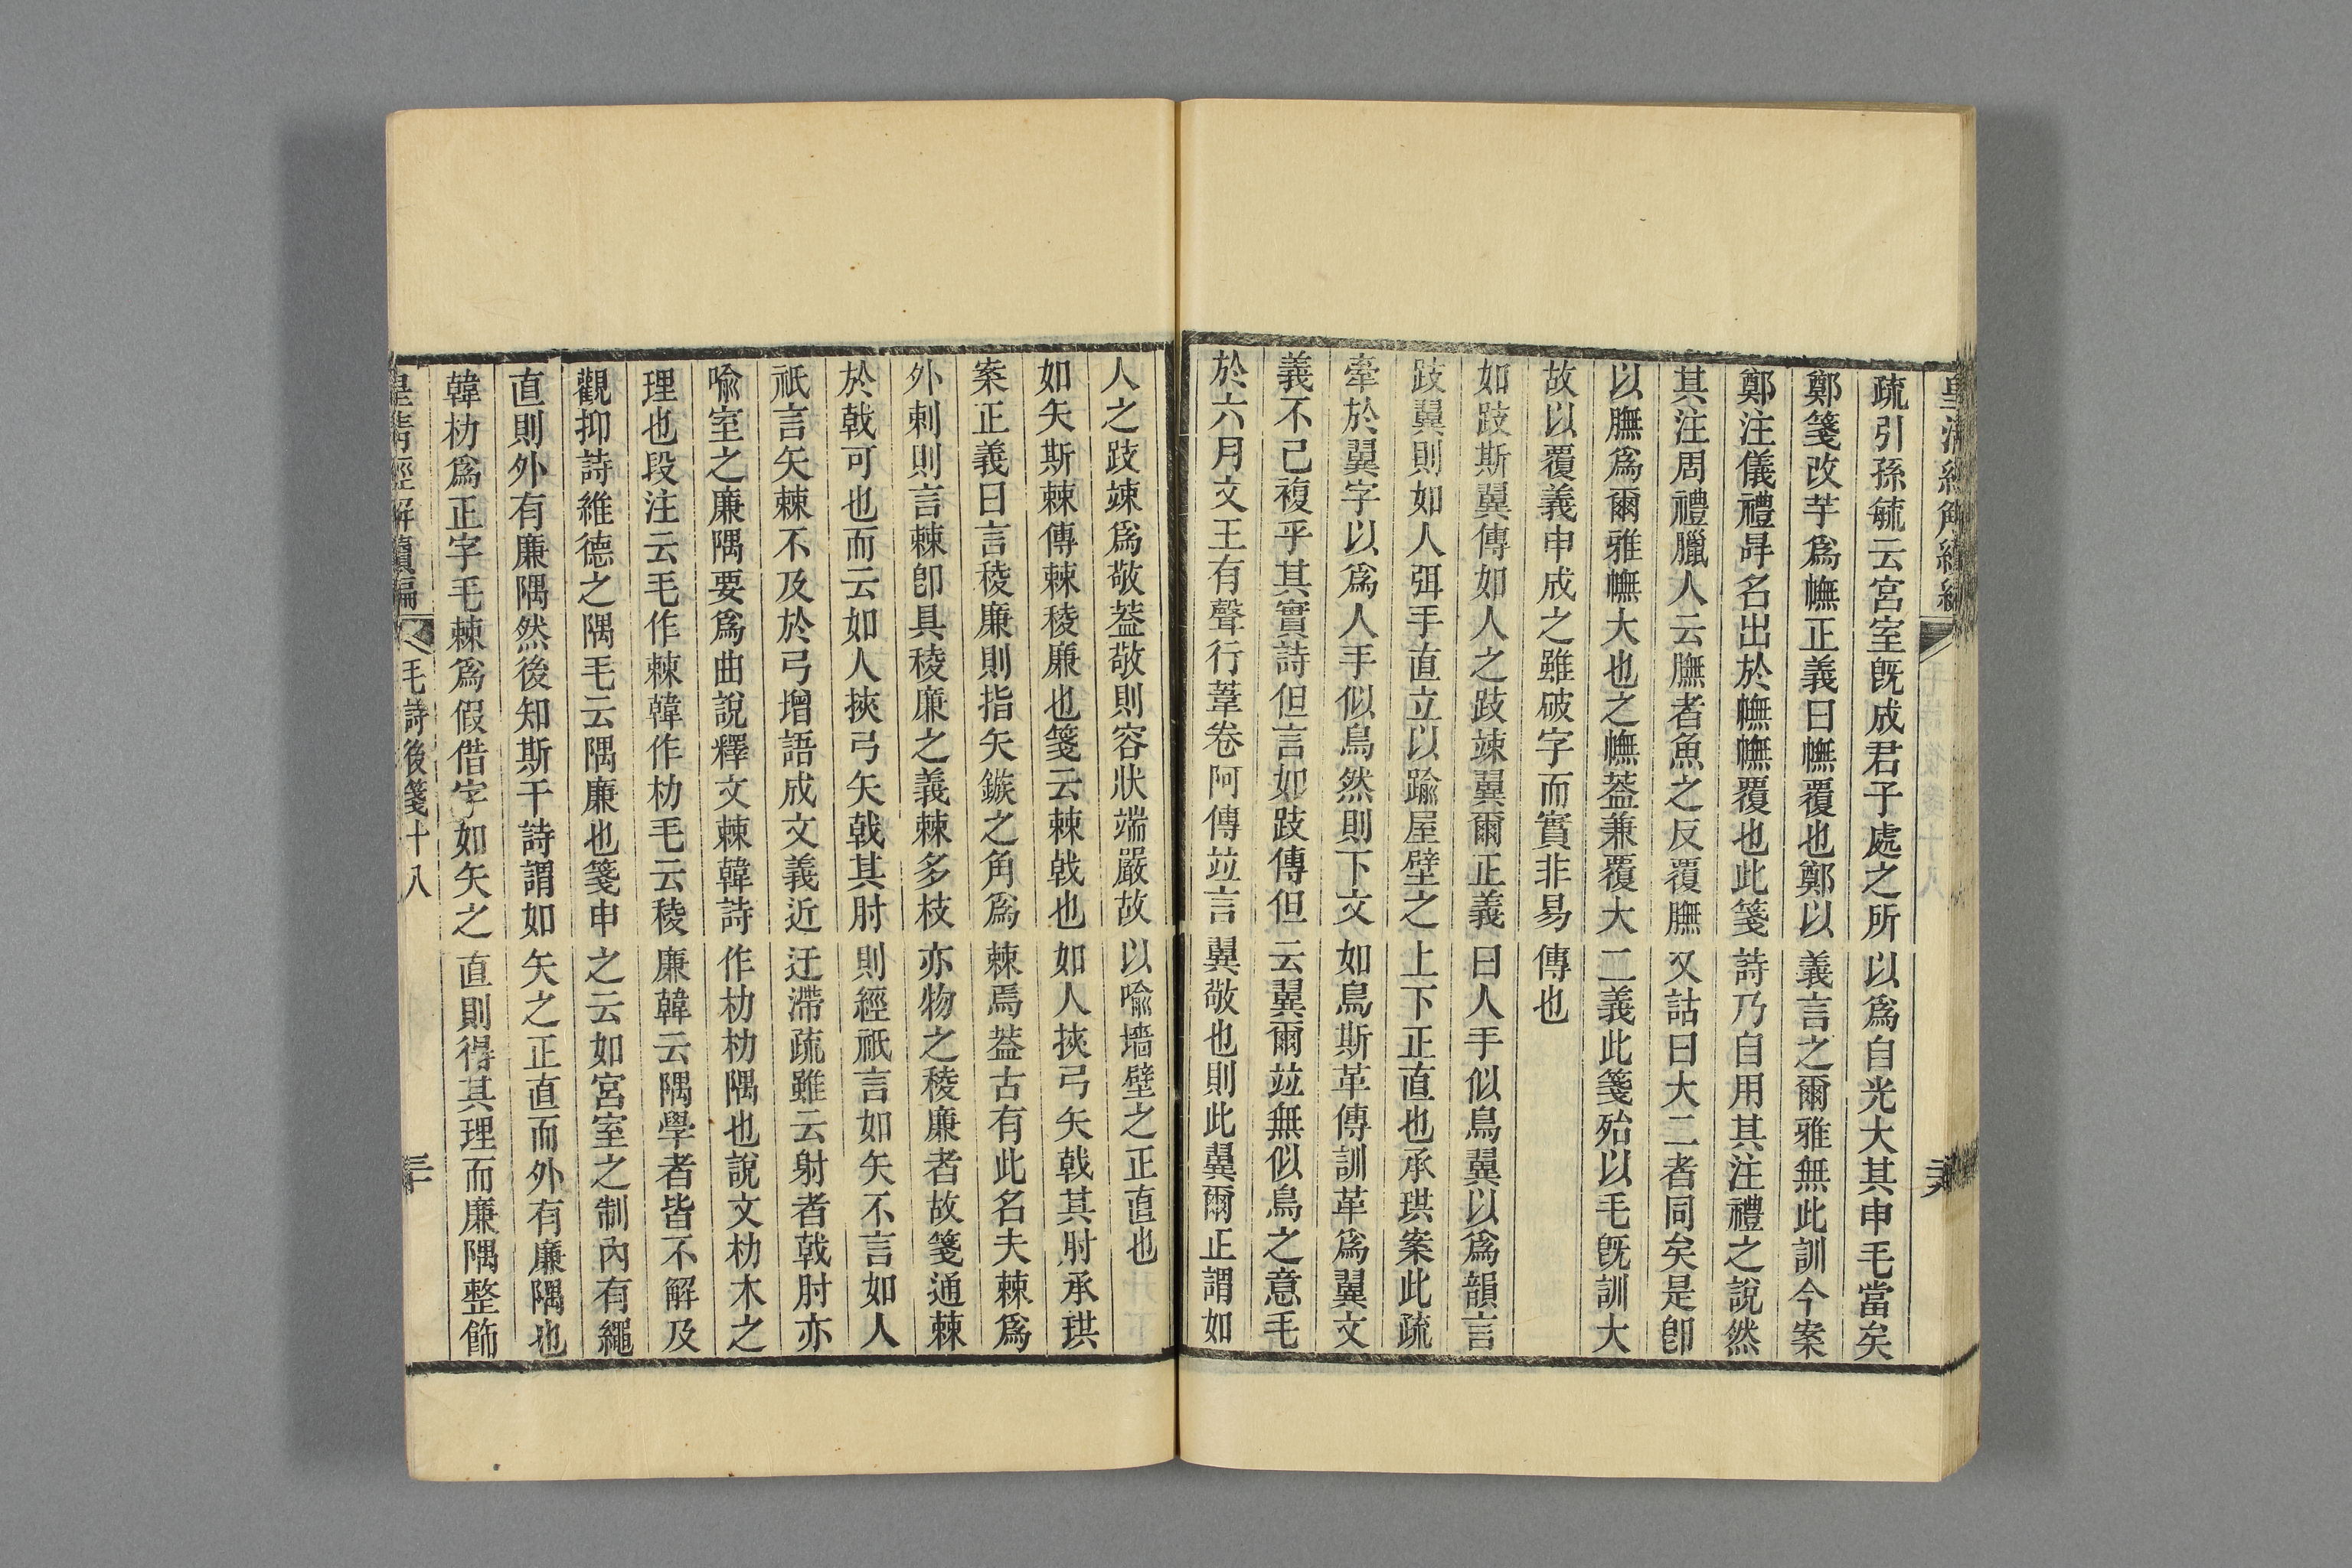 疏引孫毓云宮室旣成君子處之所以爲自光大其申毛當矣
鄭箋改芋爲幠正義曰幠覆也鄭以義言之爾雅無此訓今案
鄭注儀禮冔名出於幠幠覆也此箋詩乃自用其注禮之說然
其注周禮腊人云膴者魚之反覆膴又詁曰大二者同矣是卽
以膴爲爾雅幠大也之幠葢兼覆大二義此箋殆以毛旣訓大
故以覆義申成之雖破字而實非易傳也
如跂斯翼傳如人之跂竦翼爾正義曰人手似鳥翼以爲韻言
跂翼則如人弭手直立以踰屋壁之上下正直也承珙案此疏
牽於翼字以爲人手似鳥然則下文如鳥斯革傳訓革爲翼文
義不已複乎其實詩但言如跂傳但云翼爾竝無似鳥之意毛
於六月文王有聲行葦卷阿傳竝言翼敬也則此翼爾正謂如
人之跂竦爲敬葢敬則容狀端嚴故以喻墻壁之正直也
如矢斯棘傳棘稜廉也箋云棘戟也如人挾弓矢戟其肘承珙
案正義曰言稜廉則指矢鏃之角爲棘焉葢古有此名夫棘爲
外刺則言棘卽具稜廉之義棘多枝亦物之稜廉者故箋通棘
於戟可也而云如人挾弓矢戟其肘則經祇言如矢不言如人
祇言矢棘不及於弓增語成文義近迂滯疏雖云射者戟肘亦
喻室之廉隅要爲曲說釋文棘韓詩作朸朸隅也說文朸木之
理也段注云毛作棘韓作朸毛云稜廉韓云隅學者皆不解及
觀抑詩維德之隅毛云隅廉也箋申之云如宮室之制內有繩
直則外有廉隅然後知斯干詩謂如矢之正直而外有廉隅也
韓朸爲正字毛棘爲假借字如矢之直則得其理而廉隅整飭
皇淸經解續編
毛詩後箋十八